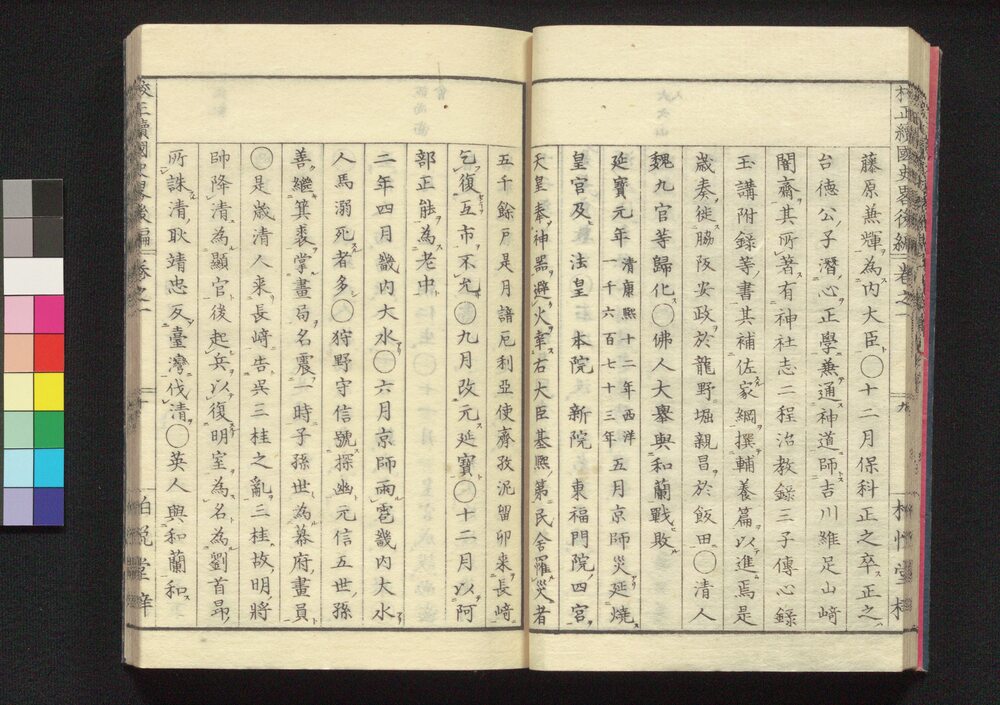 藤原兼輝為内大臣〇十二月保科正之卒正之
台德公子潛心正學兼通神道師吉川維足山崎
闇齋其所著有神社志二程治教錄三子傳心錄
玉講附錄等書其補佐家綱撰輔養篇以進焉是
歲奏徙脇阪安政於龍野堀親昌於飯田〇清人
魏九官等歸化〇佛人大舉與和蘭戰敗
延寶元年清康熙十二年西洋一千六百七十三年五月京師災延燒
皇宮及法皇本院新院東福門院四宮
天皇奉神器避火幸右大臣基熙第民舍羅災者
五千餘戶是月諳厄利亞使齊孜泥留卯来長崎
乞復互市不允〇九月改元延寶〇十二月以阿
部正能為老中
二年四月畿内大水〇六月京師雨雹畿内大水
人馬溺死者多〇狩野守信號探幽元信五世孫
善繼箕裘掌畫局名震一時子孫世為幕府畫員
〇是歲清人来長崎告吳三桂之亂三桂故明將
帥降清為顯官後起兵以復明室為名為劉首昂
所誅清耿靖忠反臺灣伐清〇英人與和蘭和